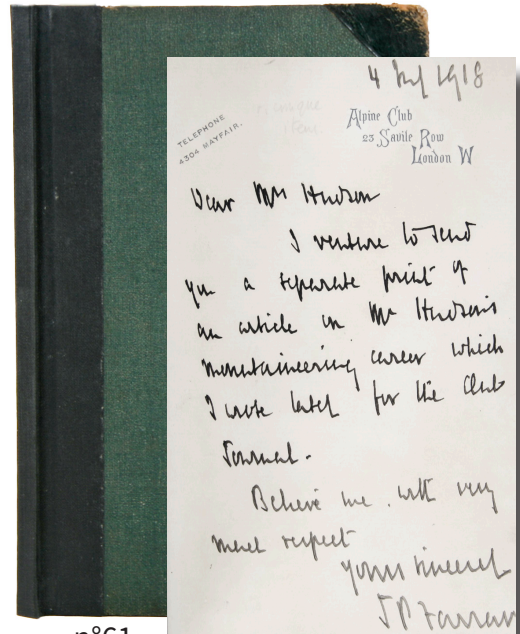 4 July 1918
TELEPHONE
4304 MAYFAIR.
Alpine Club
23 Savile Row
London W
Dear Mrs Hudson
I venture to send
you a separate print of
an article on Mr Hudson's
mountaineering career which
I wrote lately for the Club
Journal.
Believe me, with very
much respect
Yours sincerely
J P Farrar
n°61